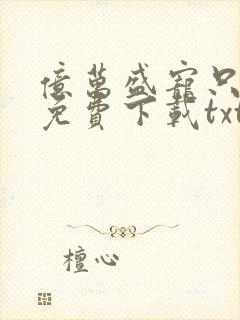 億萬盛寵只
免費下載txt
檀心